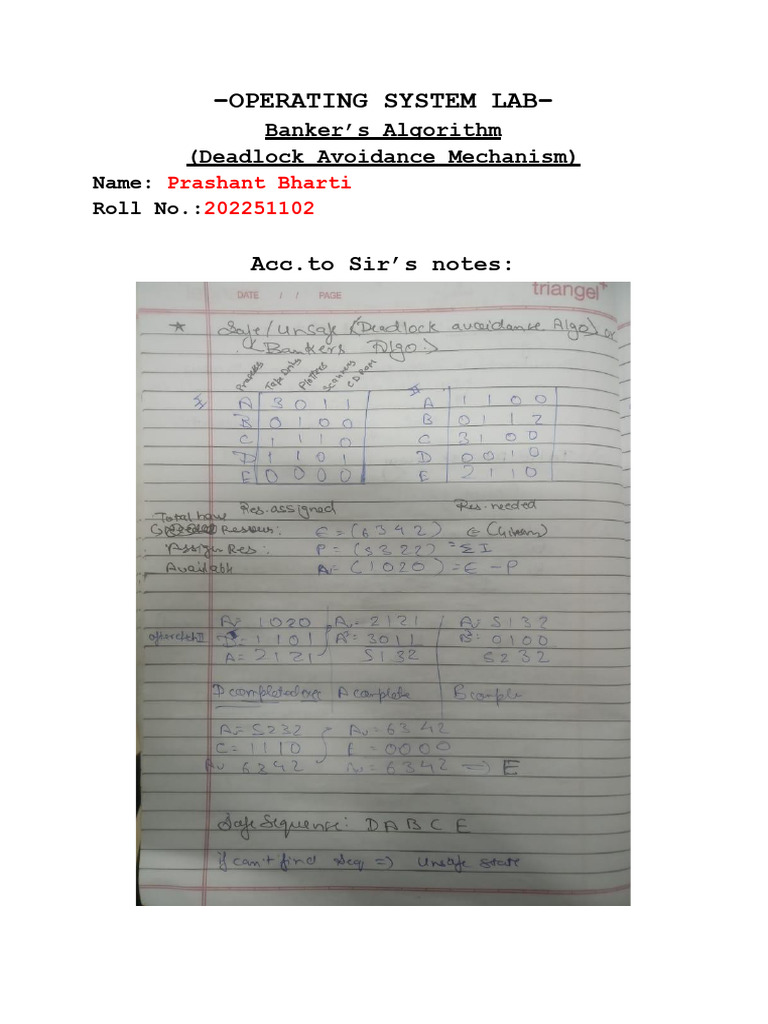 –OPERATING SYSTEM LAB–
Banker’s Algorithm
(Deadlock Avoidance Mechanism)
Name: Prashant Bharti
Roll No.:202251102
Acc.to Sir’s notes:
DATE / / PAGE
triangel+
* Safe/Unsafe (Deadlock avoidance Algo) or
(Bankers Algo.)
Process Tape Drives Plotters Scanners CD ROM
I II
A 3 0 1 1 A 1 1 0 0
B 0 1 0 0 B 0 1 1 2
C 1 1 1 0 C 3 1 0 0
D 1 1 0 1 D 0 0 1 0
E 0 0 0 0 E 2 1 1 0
Res. assigned Res. needed
Total have
E = (6 3 4 2) ← (Given)
Assign Res: P = (5 3 2 2) = Σ I
Available A = (1 0 2 0) = E - P
Av= 1020 Av= 2121 Av 5132
D= 1101 A= 3011 B= 0100
A= 2121 5132 5232
D completed A complete B comple
Av= 5232 Av= 6342
C= 1110 E = 0000
Av 6342 Av= 6342 => E
Safe Sequence: D A B C E
if can't find seq => Unsafe state